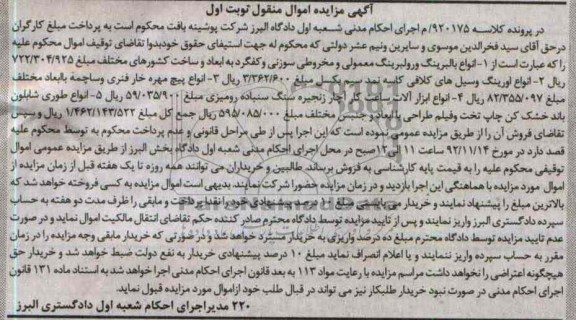 آگهی مزایده اموال منقول نوبت اول
در پرونده کلاسه ۹۲۰۱۷۵/م اجرای احکام مدنی شعبه اول دادگاه البرز شرکت پوشینه بافت محکوم است به پرداخت مبلغ کارگران
درحق آقای سید فخرالدین موسوی و سایرین ونیم عشر دولتی که محکوم له جهت استیفای حقوق خودبدوا تقاضای توقیف اموال محکوم علیه
را که عبارت است از ۱-انواع بالبرینگ ورولبرینگ معمولی و مخروطی سوزنی وکفگرد به ابعاد و ساخت کشورهای مختلف مبلغ ۷۲۲/۳۰۴/۹۲۵
ریال ۲- انواع اورینگ وسیل های کلافی کاسه نمد سیم بکسل مبلغ ۳/۳۶۲/۶۰۰ ریال ۳- انواع پیچ مهره خار فنری وساچمه باابعاد مختلف
مبلغ ۸۲/۳۵۵/۰۹۷ ریال ۴- انواع ابزار آلات آچار زنجیره سنگ سنباده رومیزی مبلغ ۵۹/۰۳۵/۹۰۰ ریال ۵- انواع طوری شابلون
باند خشک کن چاپ تخت وفیلم طراحی باابعاد و جنس مختلف مبلغ ۵۹۵/۰۸۵/۰۰۰ ریال جمع کل مبلغ ۱/۴۶۲/۱۴۳/۵۲۲ ریال و سپس
تقاضای فروش آن را از طریق مزایده عمومی نموده است که این اجرا پس از طی مراحل قانونی و عدم پرداخت محکوم به توسط محکوم علیه
قصد دارد در مورخ ۹۲/۱۱/۱۴ ساعت ۱۱ الی ۱۲صبح در محل اجرای احکام مدنی شعبه اول دادگاه بخش البرز از طریق مزایده عمومی اموال
توقیفی محکوم علیه را به قیمت پایه کارشناسی به فروش برساند. طالبین و خریداران می توانند همه روزه تا یک هفته قبل از زمان مزایده از
اموال مورد مزایده با هماهنگی این اجرا بازدید و در زمان مزایده حضورا شرکت نمایند بدیهی است اموال مزایده به کسی فروخته خواهد شد که
بالاترین مبلغ را پیشنهاد نمایند و خریدار می بایستی مبلغ ۱۰ درصد پیشنهادی خود را نقدا پرداخت و مابقی را ظرف مدت دو هفته به حساب
سپرده دادگستری البرز واریز نمایند و پس از تایید مزایده توسط دادگاه محترم صادر کننده حکم تقاضای انتقال مالکیت اموال نماید و در صورت
عدم تایید مزایده توسط دادگاه محترم مبلغ ده درصد واریزی به خریدار مسترد خواهد شد و در صورتی که خریدار مابقی وجه مزایده را در زمان
مقرر به حساب سپرده واریز ننمایند و یا اعلام انصراف نماید مبلغ ۱۰ درصد پیشنهادی خریدار به نفع دولت ضبط خواهد شد و خریدار حق
هیچگونه اعتراضی را نخواهد داشت مراسم مزایده با رعایت مواد ۱۱۳ به بعد قانون اجرای احکام مدنی اجرا خواهد شد به استناد ماده ۱۳۱ قانون
اجرای احکام مدنی در صورت نبود خریدار طلبکار نیز می تواند در قبال طلب خود ازاموال مورد مزایده قبول نماید.
۲۲۰ مدیراجرای احکام شعبه اول دادگستری البرز